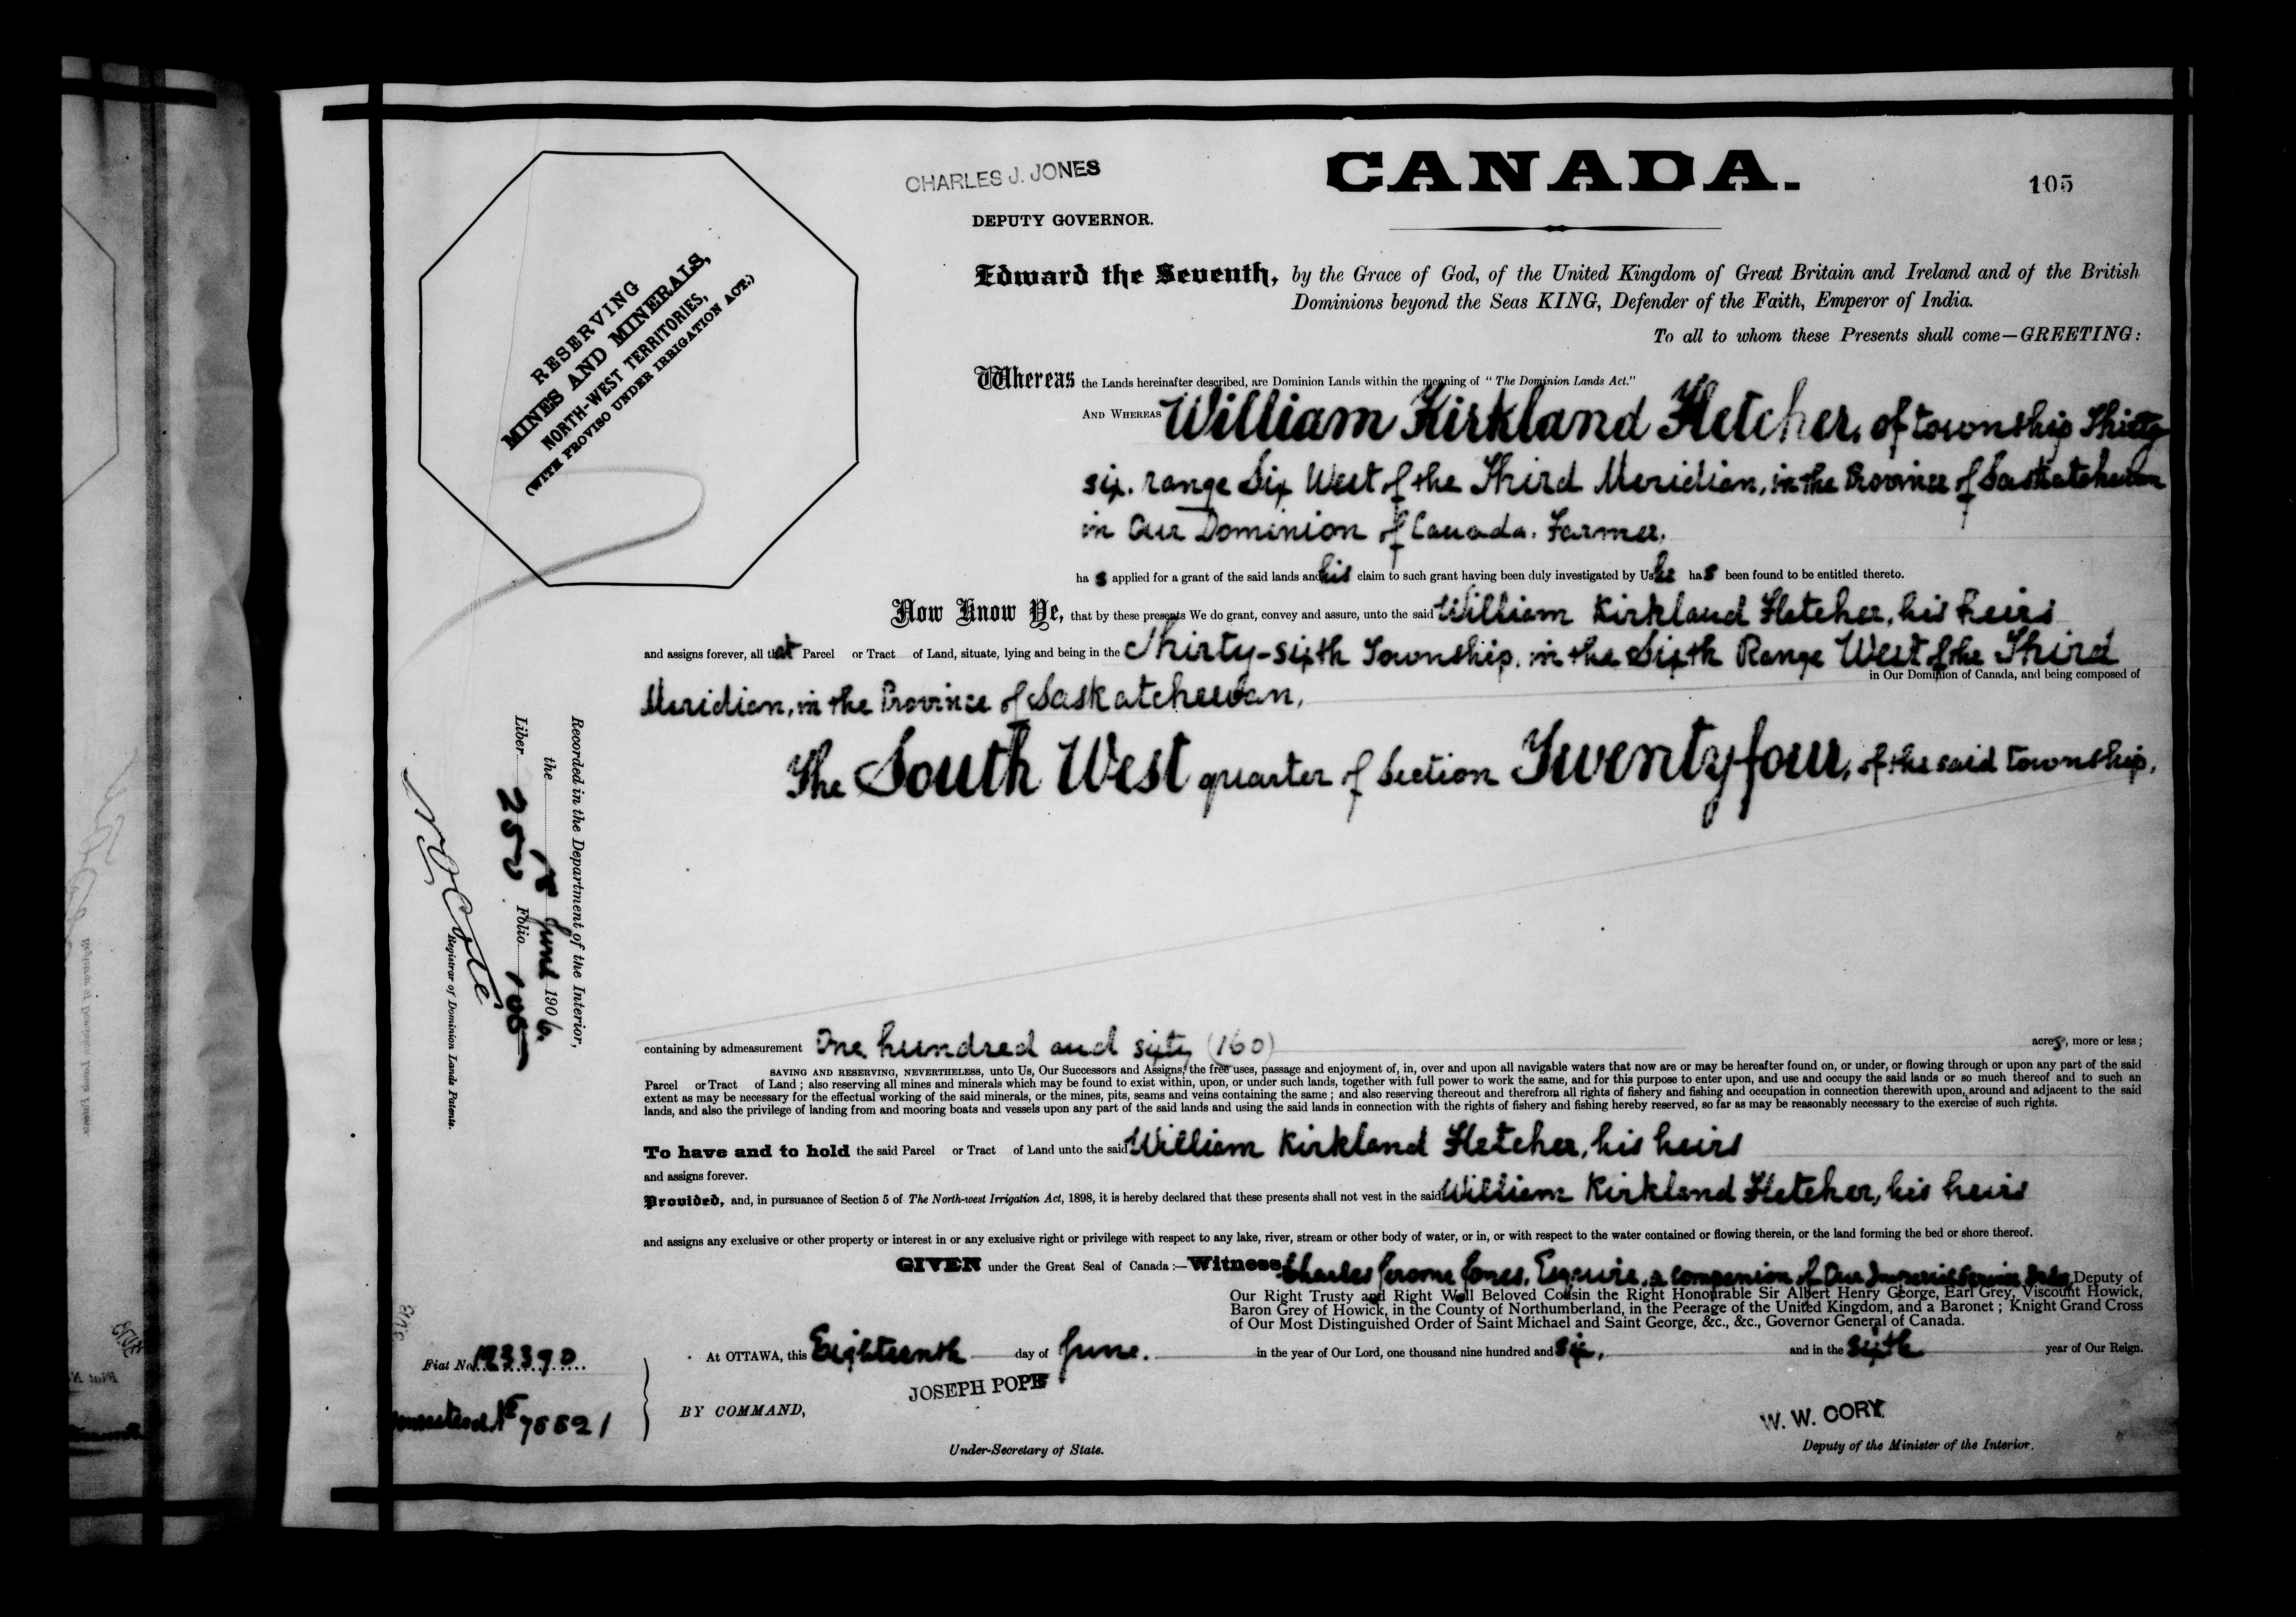 CHARLES J. JONES
CANADA.
105
DEPUTY GOVERNOR.
RESERVING
MINES AND MINERALS,
NORTH-WEST TERRITORIES,
(WITH PROVISO UNDER IRRIGATION ACT.)
Edward the Seventh, by the Grace of God, of the United Kingdom of Great Britain and Ireland and of the British
Dominions beyond the Seas KING, Defender of the Faith, Emperor of India.
To all to whom these Presents shall come—GREETING:
Whereas the Lands hereinafter described, are Dominion Lands within the meaning of "The Dominion Lands Act."
AND WHEREAS William Kirkland Fletcher, of township Thirty
six, range Six West of the Third Meridian, in the Province of Saskatchewan
in Our Dominion of Canada, Farmer,
has applied for a grant of the said lands and his claim to such grant having been duly investigated by Us he has been found to be entitled thereto.
Now Know Ye, that by these presents We do grant, convey and assure, unto the said William Kirkland Fletcher, his heirs
and assigns forever, all that Parcel or Tract of Land, situate, lying and being in the Thirty-sixth Township, in the Sixth Range West of the Third
in Our Dominion of Canada, and being composed of
Meridian, in the Province of Saskatchewan,
The South West quarter of Section Twenty four, of the said township,
Recorded in the Department of the Interior,
the 18 June 1906.
Liber 252 Folio 105
N O Coté
Registrar of Dominion Lands Patents.
containing by admeasurement One hundred and sixty (160) acres, more or less;
SAVING AND RESERVING, NEVERTHELESS, unto Us, Our Successors and Assigns, the free uses, passage and enjoyment of, in, over and upon all navigable waters that now are or may be hereafter found on, or under, or flowing through or upon any part of the said
Parcel or Tract of Land; also reserving all mines and minerals which may be found to exist within, upon, or under such lands, together with full power to work the same, and for this purpose to enter upon, and use and occupy the said lands or so much thereof and to such an
extent as may be necessary for the effectual working of the said minerals, or the mines, pits, seams and veins containing the same; and also reserving thereout and therefrom all rights of fishery and fishing and occupation in connection therewith upon, around and adjacent to the said
lands, and also the privilege of landing from and mooring boats and vessels upon any part of the said lands and using the said lands in connection with the rights of fishery and fishing hereby reserved, so far as may be reasonably necessary to the exercise of such rights.
To have and to hold the said Parcel or Tract of Land unto the said William Kirkland Fletcher, his heirs
and assigns forever.
Provided, and, in pursuance of Section 5 of The North-west Irrigation Act, 1898, it is hereby declared that these presents shall not vest in the said William Kirkland Fletcher, his heirs
and assigns any exclusive or other property or interest in or any exclusive right or privilege with respect to any lake, river, stream or other body of water, or in, or with respect to the water contained or flowing therein, or the land forming the bed or shore thereof.
GIVEN under the Great Seal of Canada:—Witness Charles Jerome Jones, Esquire, a companion of Our Imperial Service Order, Deputy of
Our Right Trusty and Right Well Beloved Cousin the Right Honourable Sir Albert Henry George, Earl Grey, Viscount Howick,
Baron Grey of Howick, in the County of Northumberland, in the Peerage of the United Kingdom, and a Baronet; Knight Grand Cross
of Our Most Distinguished Order of Saint Michael and Saint George, &c., &c., Governor General of Canada.
At OTTAWA, this Eighteenth day of June. in the year of Our Lord, one thousand nine hundred and six, and in the sixth year of Our Reign.
Fiat No. 193390
JOSEPH POPE
BY COMMAND,
W. W. CORY
Under-Secretary of State.
Deputy of the Minister of the Interior.